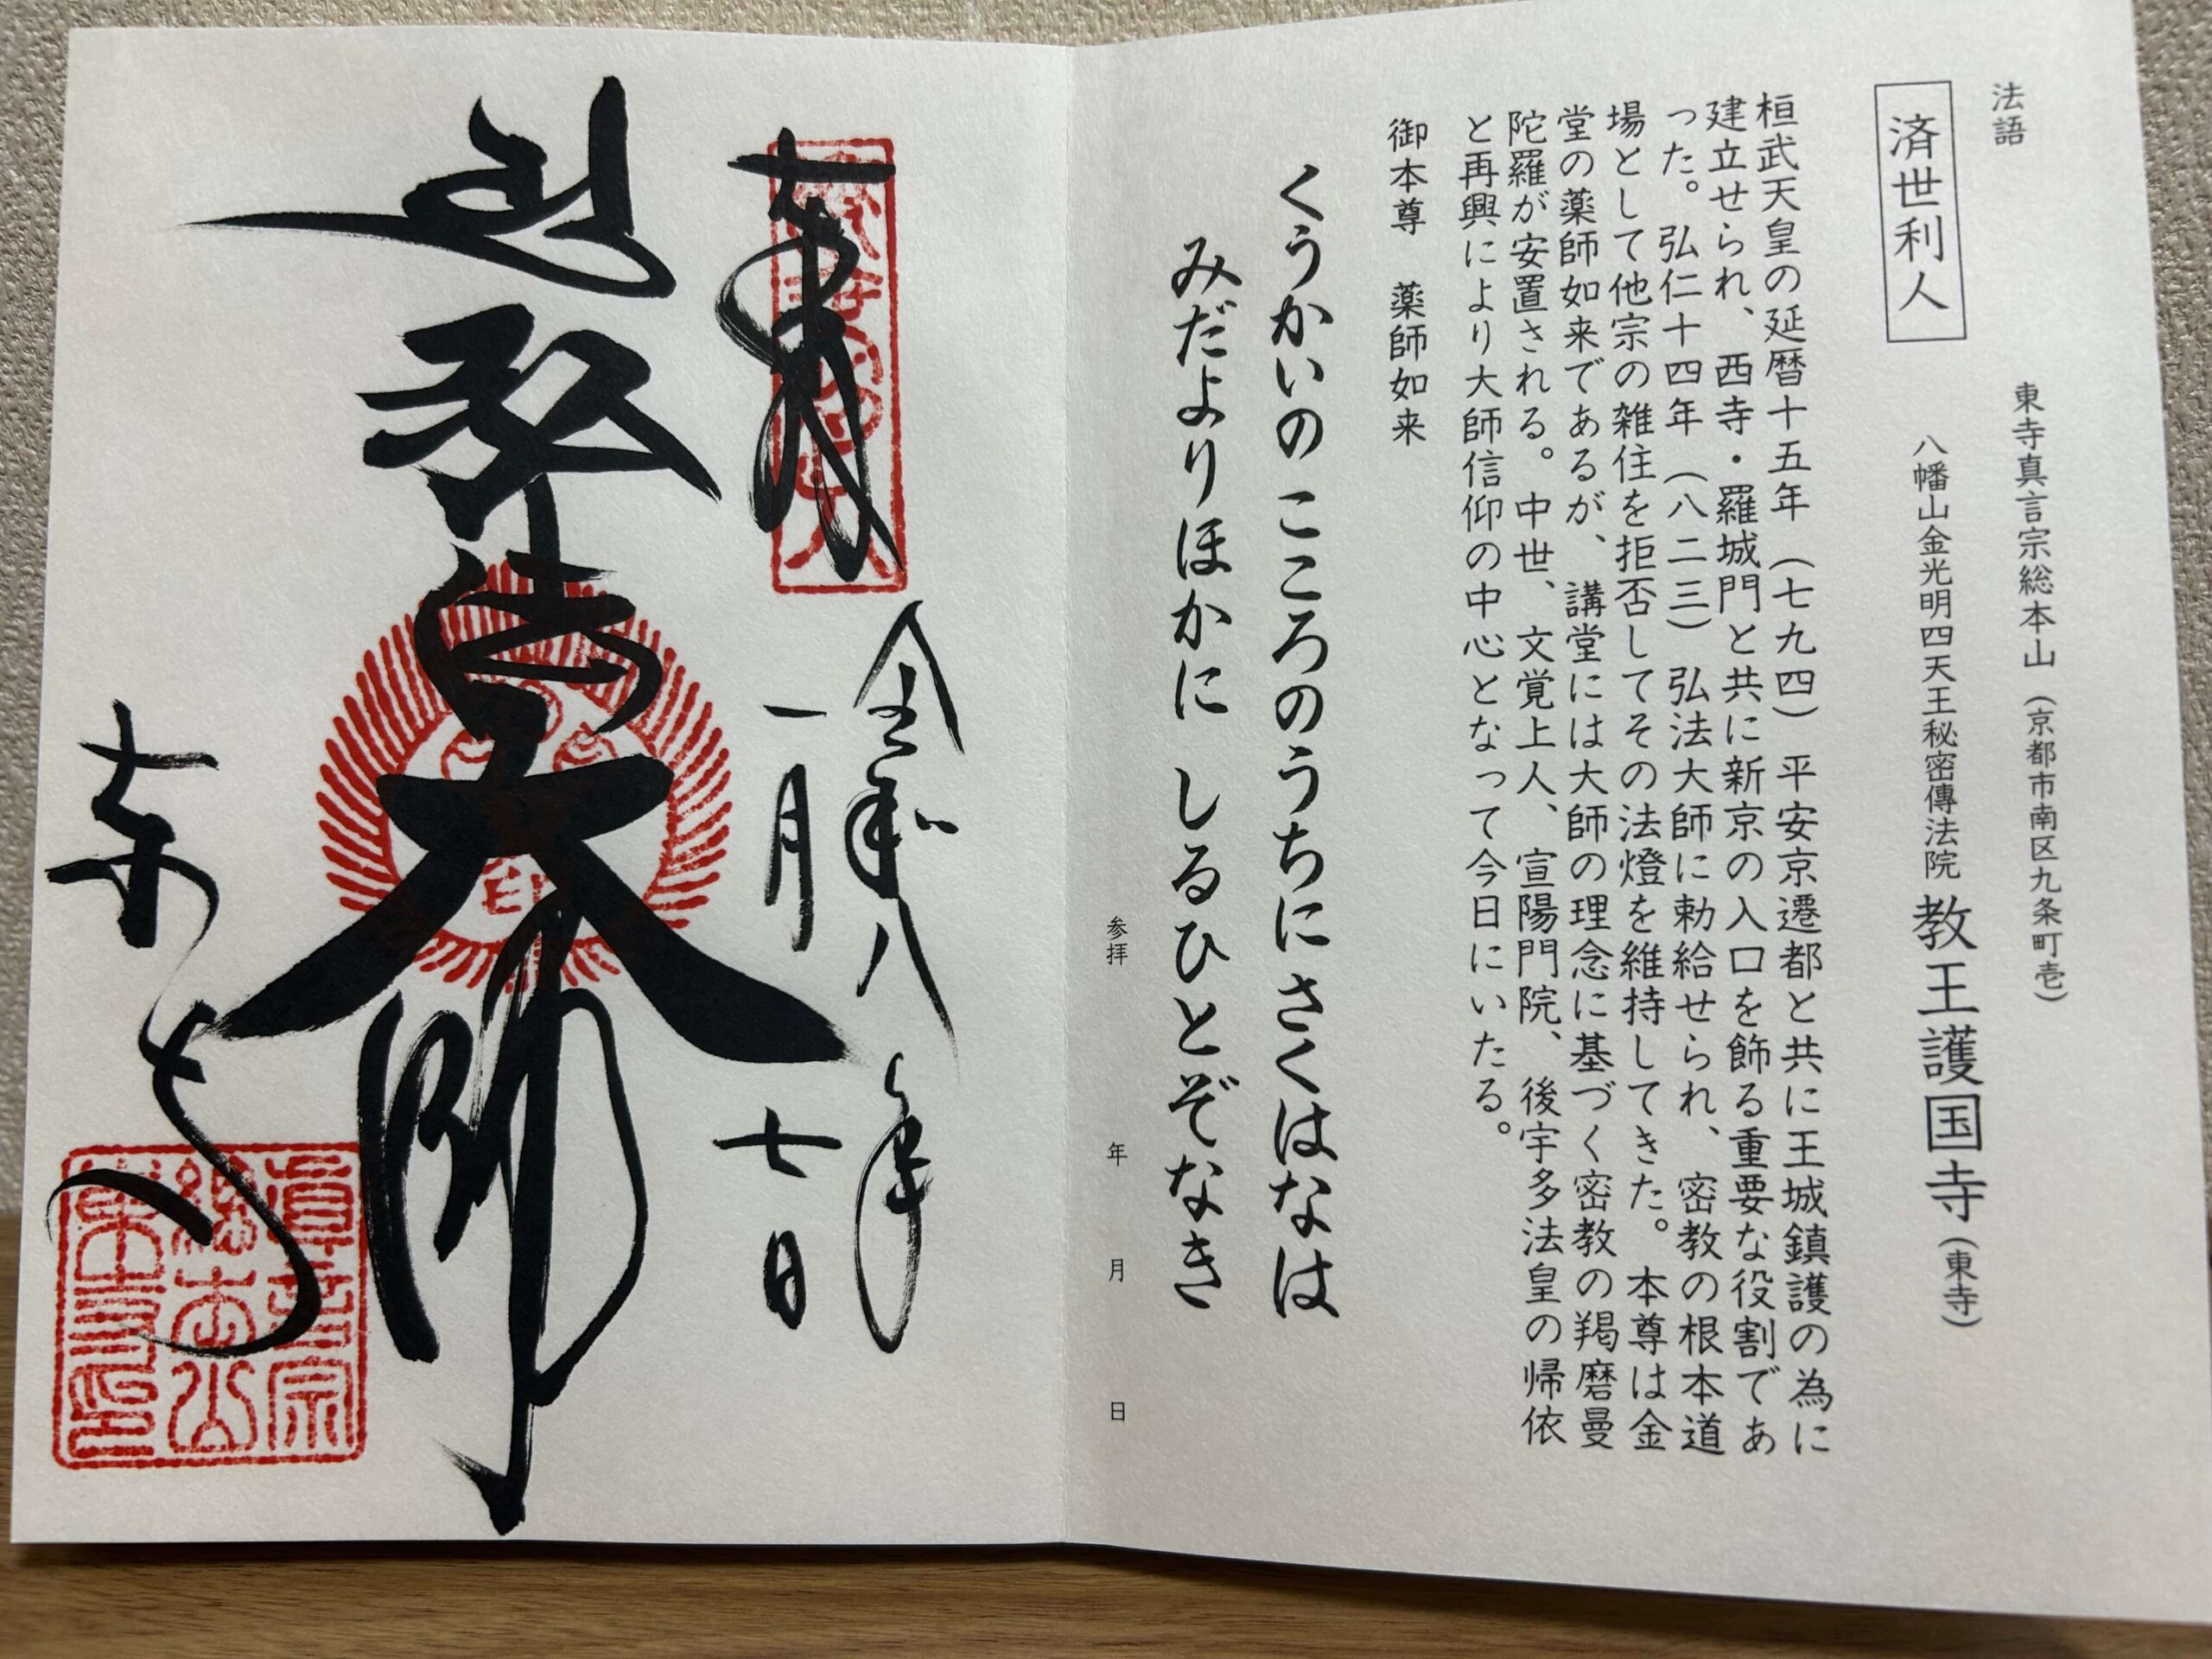 法語
東寺真言宗総本山（京都市南区九条町壱）
済世利人
八幡山金光明四天王秘密傳法院 教王護国寺（東寺）
桓武天皇の延暦十五年（七九四）平安京遷都と共に王城鎮護の為に
建立せられ、西寺・羅城門と共に新京の入口を飾る重要な役割であ
った。弘仁十四年（八二三）弘法大師に勅給せられ、密教の根本道
場として他宗の雑住を拒否してその法燈を維持してきた。本尊は金
堂の薬師如来であるが、講堂には大師の理念に基づく密教の羯磨曼
陀羅が安置される。中世、文覚上人、宣陽門院、後宇多法皇の帰依
と再興により大師信仰の中心となって今日にいたる。
御本尊 薬師如来
くうかいの こころのうちにさくはなは
みだよりほかに しるひとぞなき
参拝 年 月 日
奉拝
令和八年
一月七日
弘法大師
東寺
真言宗
総本山
東寺印